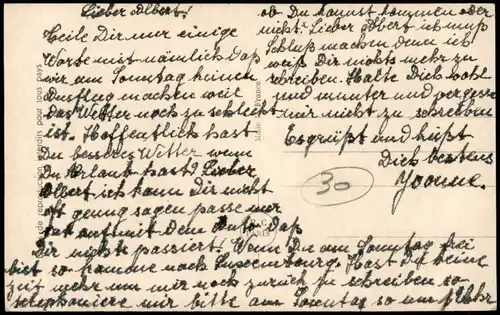 Lieber Albert!
Teile Dir nur einige
Worte mit nämlich daß
wir am Sonntag keinen
Ausflug machen weil
das Wetter noch zu schlecht
ist. Hoffentlich hast
Du besseres Wetter wenn
Du Urlaub hast? Lieber
Albert ich kann Dir nicht
oft genug sagen passe nur
gut auf mit dem Auto daß
Dir nichts passiert. Wenn Du am Sonntag frei
bist so komme nach Luxembourg. Hast Du keine
zeit mehr um mir noch zurück zu schreiben so
telephoniere mir bitte am Sonntag so um 1 Uhr
ob Du kannst kommen oder
nicht. Lieber Albert ich muß
Schluß machen denn ich
weiß Dir nichts mehr zu
schreiben. Halte Dich wohl
und munter und vergesse
mir nicht zu schreiben
Es grüßt und küßt
Dich bestens
Yvonne.
30
de reproduction interdits pour tous pays